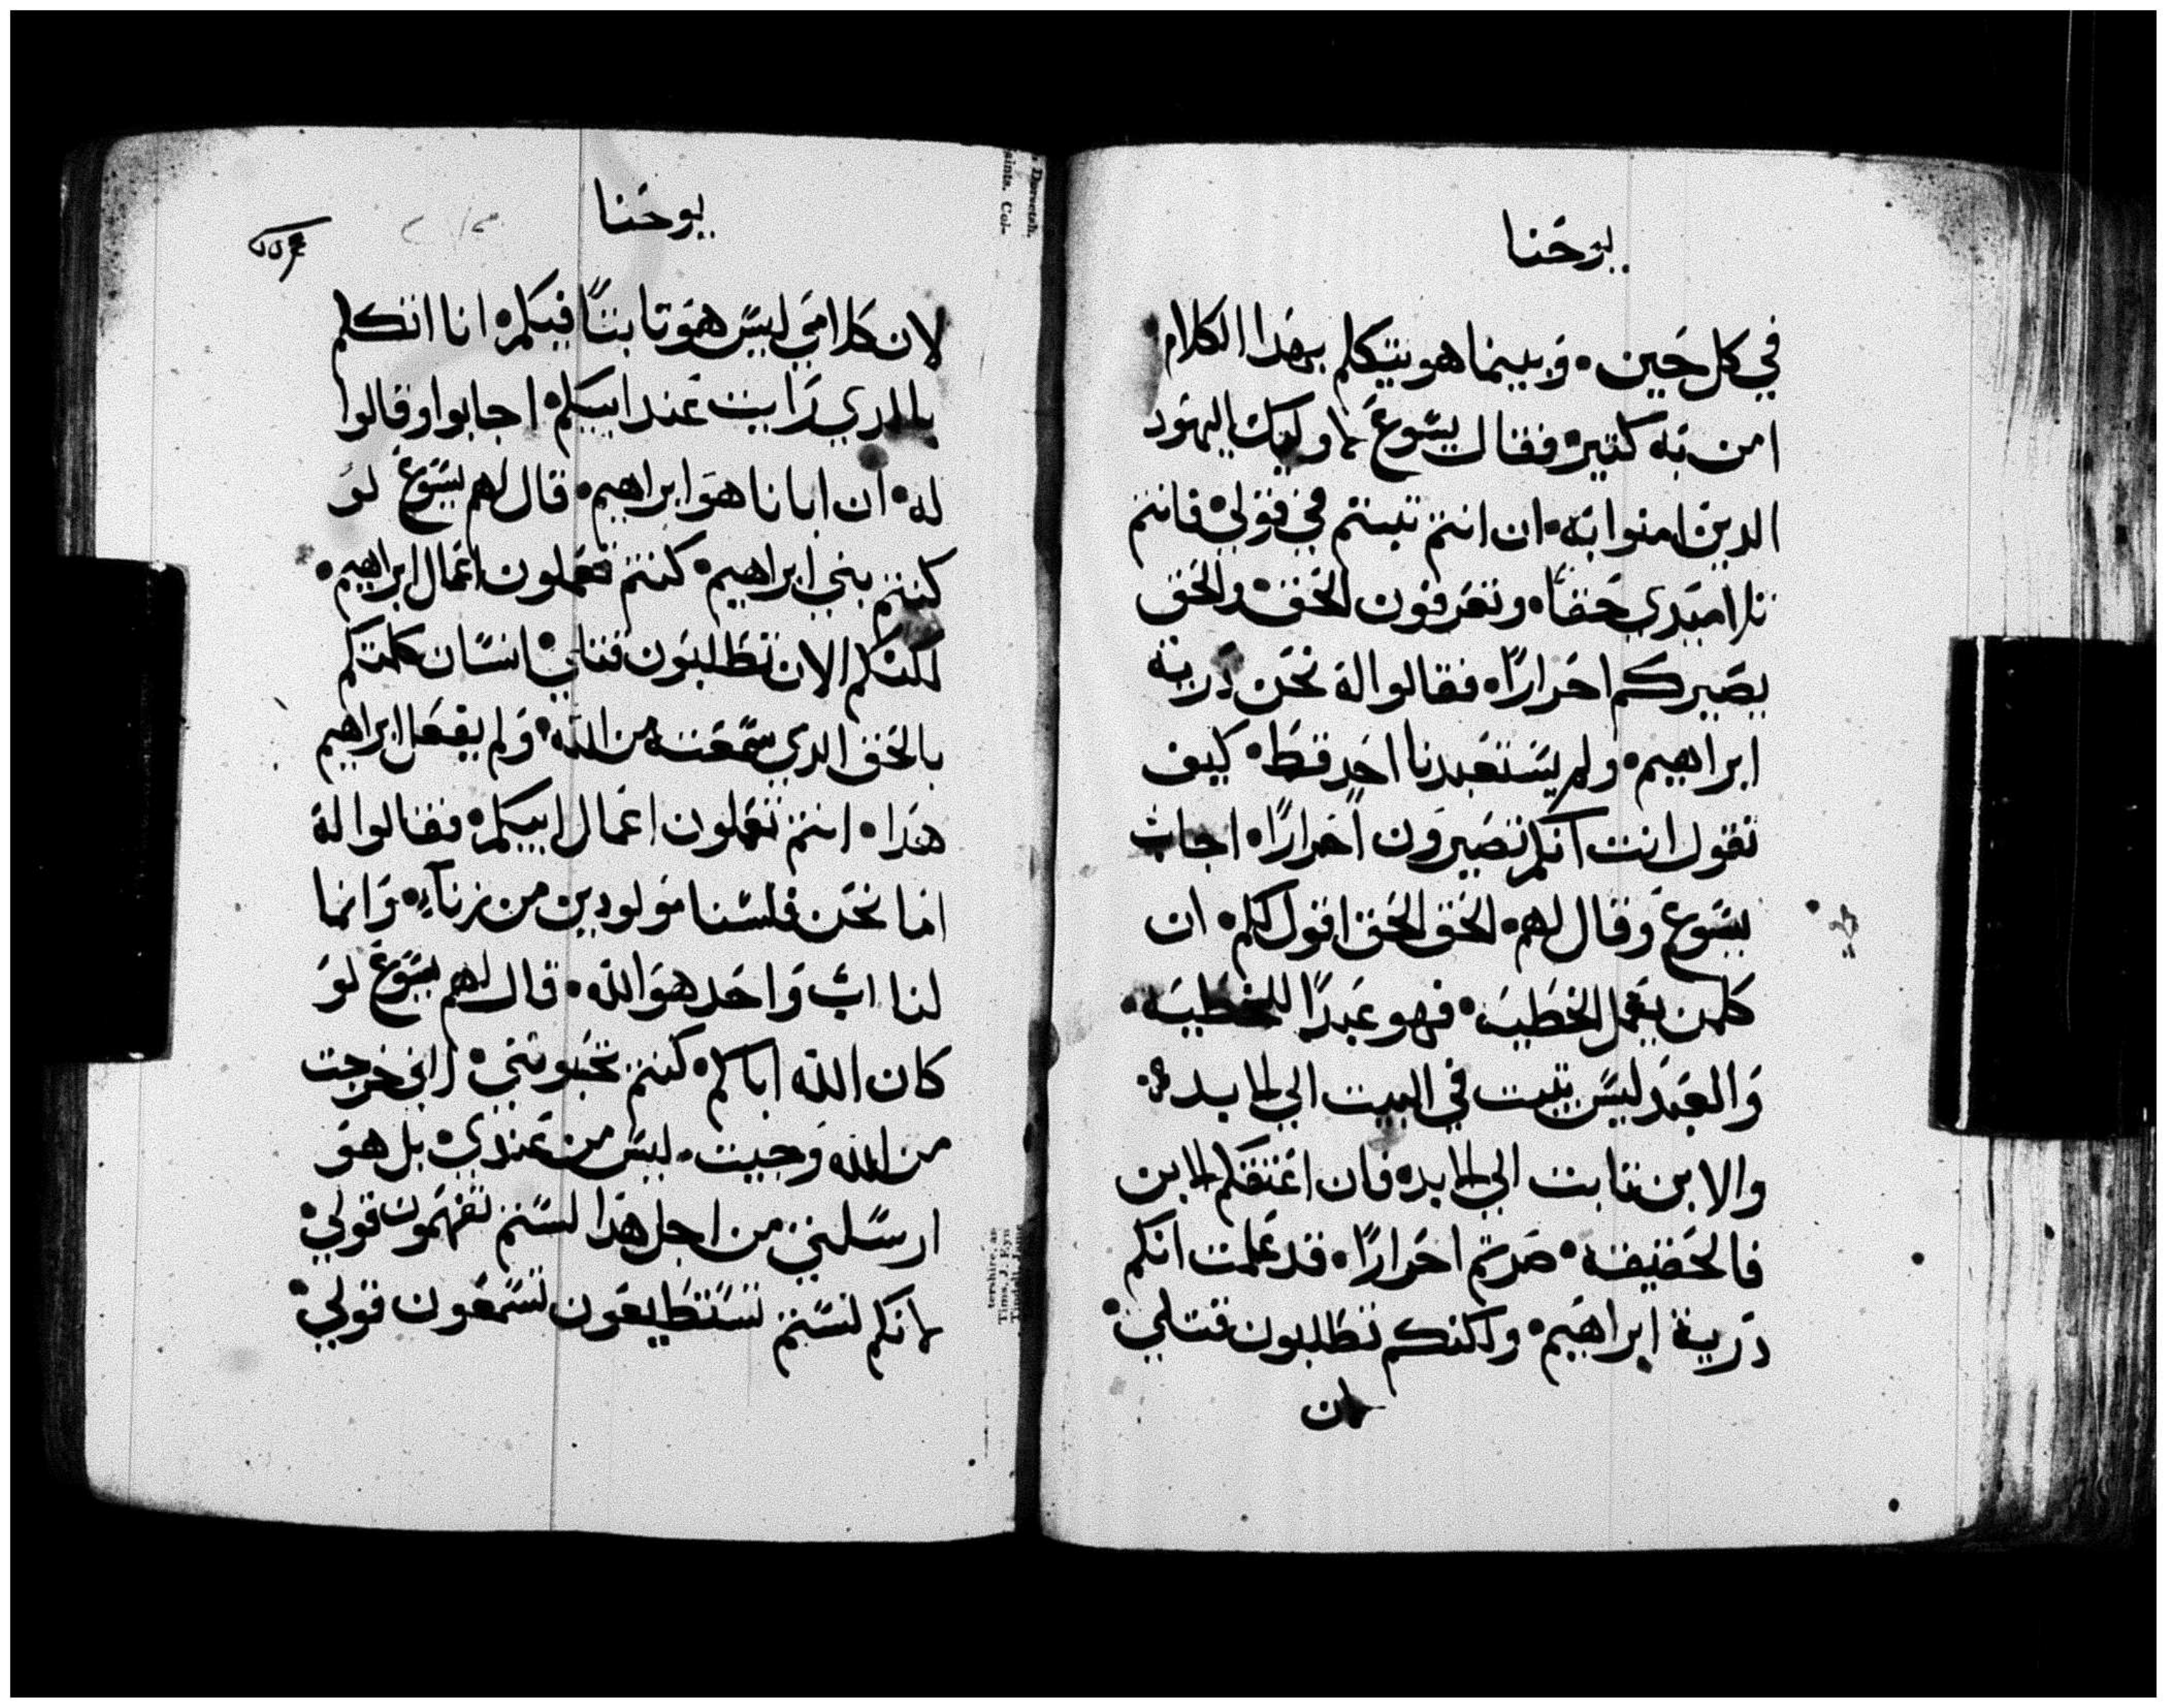 يوحنا
في كل حين • وبينما هو يتكلم بهدا الكلام
امن به كتير • فقال يسوع لاوليك اليهود
الدين امنوا به • ان انتم تبتم في قولي • فانتم
تلاميدي حقا • وتعرفون الحق • والحق
يصيركم احرارا • فقالوا له نحن درية
ابراهيم • ولم يستعبدنا احد قط • كيف
تقول انت انكم تصيرون احرارا • اجاب
يسوع وقال لهم • الحق الحق اقول لكم • ان
كلمن يعمل الخطيه • فهو عبدا للخطيه •
والعبد ليس يتبت في البيت الي الابد •
والابن تابت الي الابد • فان اعتقكم الابن
فالحقيقه • صرتم احرارا • قد علمت انكم
درية ابراهيم • ولكنكم تطلبون قتلي •
لان
يوحنا
لان كلامي ليس هو تابتا فيكم • انا اتكلم
بالدي رايت عند ابي • اجابوا وقالوا
له • ان ابانا هو ابراهيم • قال لهم يسوع لو
كنتم بني ابراهيم • كنتم تعملون اعمال ابراهيم •
لكنكم الان تطلبون قتلي • انسان كلمتكم
بالحق الدي سمعته من الله • ولم يفعل ابراهيم
هدا • انتم تعملون اعمال ابيكم • فقالوا له
اما نحن فلسنا مولودين من زناء • وانما
لنا اب واحد هو الله • قال لهم يسوع لو
كان الله اباكم • كنتم تحبونني • اني خرجت
من الله وجيت • ليس من عندي • بل هو
ارسلني من اجل هدا لستم تفهمون قولي •
لانكم لستم تستطيعون تسمعون قولي •